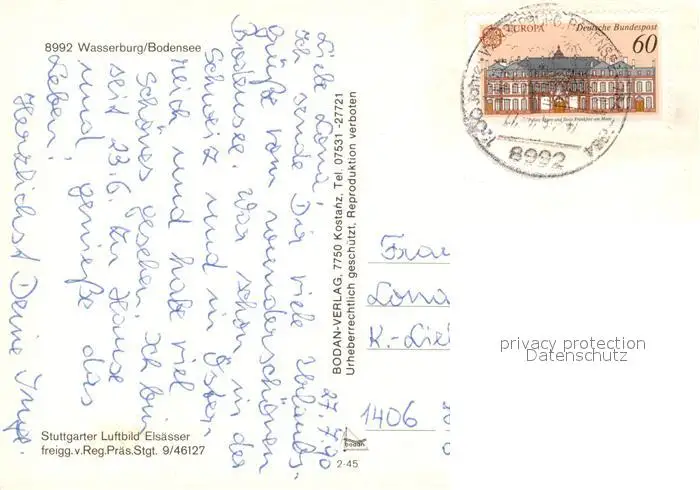 8992 Wasserburg/Bodensee
27. 7. 90
Liebe Lona,
ich sende Dir viele Urlaubs-
grüße vom wunderschönen
Bodensee. War schon in der
Schweiz und in Öster-
reich und habe viel
Schönes gesehen. Ich bin
seit 23.6. zu Hause
und genieße das
Leben.
Herzlichst Deine Inge.
Stuttgarter Luftbild Elsässer
freigg.v.Reg.Präs.Stgt. 9/46127
BODAN-VERLAG, 7750 Kostanz, Tel. 07531 -27721
Urheberrechtlich geschützt, Reproduktion verboten
bodan
2-45
EUROPA
Deutsche Bundespost
60
Palais Thurn und Taxis Frankfurt am Main
1200 Jahre WASSERBURG, BODENSEE
8992
Frau
Lona
K.-Lie
1406
privacy protection
Datenschutz